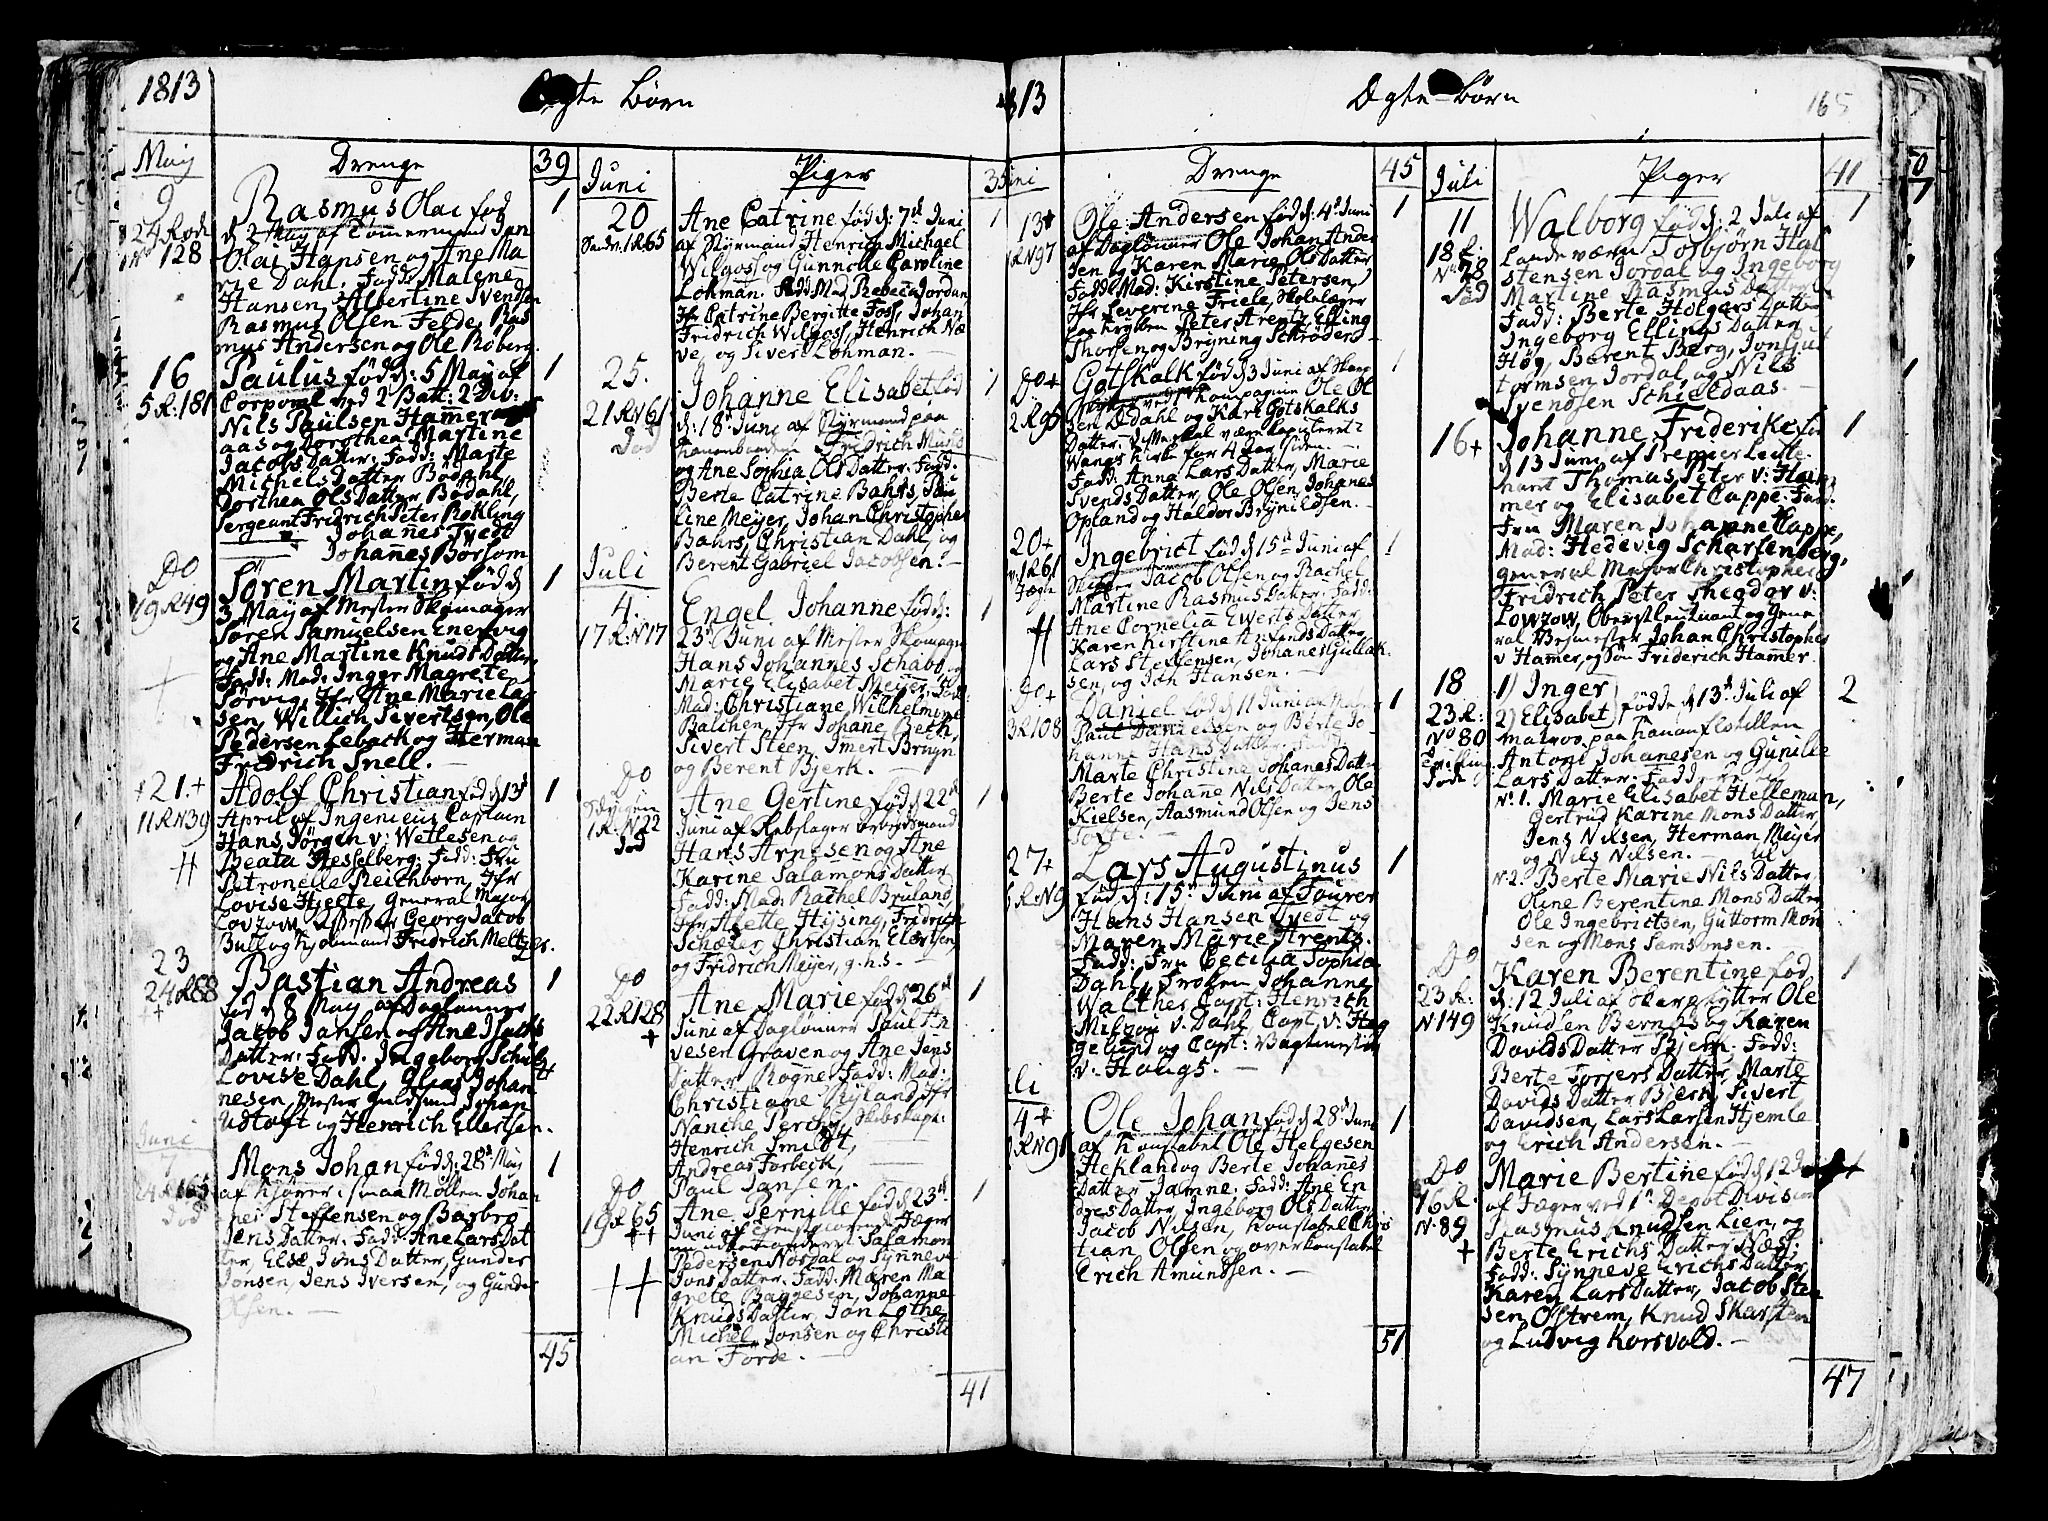 1813
Ægte Børn
May
Drenge
39
9
24 Rode
No 128
Rasmus Olai fød
d. 2 May af Tømermand Jan
Olai Hansen og Ane Ma
rie Dahl. Fadd: Malene
Hansen, Albertine Svendsen
Rasmus Olsen Felde, Ras
mus Andersen og Ole Roberg
1
16
5 R: 181
Paulus fød d: 5 May af
Corporal ved 2 Batt: 2 Div:
Nils Paulsen Hameraas
aas og Dorothea Martine
Jacobs Datter: Fadd: Marte
Michels Datter Bødahl,
Dorthea Ols Datter Bødahl,
Sergeant Fridrich Peter Rokling
Johanes Tvedt
Johanes Borsom
1
Do
19 R 49
Søren Martin fød d
3 May af Mester Skomager
Søren Samuelsen Enervig
og Ane Martine Knuds Datter,
Fadd: Mad: Inger Magrete
Sørvig, Jfr Ane Marie Lar
sen, Willich Sivertsen, Ole
Pedersen Leback og Herman
Fridrich Snell.
1
21 +
11 R N 39
Adolf Christian fød d 13
April af Ingenieur Captain
Hans Jørgen v: Wetlesen og
Beata Hesselberg: Fadd: Fru
Petronelle Reichborn, Jfr
Lovise Hjelte, General Major
Lovzow, Georg Jacob
Bull og Kjøbmand Fridrich Meltzer.
1
23
24 R 68
Bastian Andreas
fød d 8 May af Daglønner
Jacob Jansen og Ane Isachs
Datter: Fadd: Ingeborg Schultz
Lovise Dahl, Elias Johan
nesen, Mester Guldsmed Johan
Udtoft og Henrich Ellertsen.
1
Juni
7
24 R 165
død
Mons Johan fød d: 28 May
af Kjører i smaa Møllen Johan
nes Steffensen og Barbro
Jens Datter: Fadd: Ane Lars Dat
ter, Else Jons Datter, Gunder
Jonsen, Jens Iversen, og Gunder
Olsen.
1
45
Juni
Piger
35
20
Sandv. 1 R 65
Ane Catrine fød d: 7 Juni
af Styrmand Henrich Michael
Wilgoss og Gunnille Caroline
Lohman. Fadd Mad Rebecca Jordan
Jfr Catrine Bergitte Foss, Johan
Fridrich Wilgoss, Henrich Næ
ve, og Sivert Lohman.
1
25.
21 R N 61
død
Johanne Elisabet fød
d: 18 Juni af Styrmand paa
Kanonbaaden Fredrich Mund
og Ane Sophia Ols Datter: Fadd:
Berte Catrine Bahrs, Pau
line Meyer, Johan Christopher
Bahrs, Christian Dahl, og
Berent Gabriel Jacobsen.
1
Juli
4.
17 R: N 17
Engel Johanne fød d:
23 Juni af Mester Skomager
Hans Johannes Schabo og
Marie Elisabet Meyer: Fadd:
Mad: Christiane Wilhelmine
Balchen, Jfr Johane Bech,
Sivert Steen, Imert Bruyn
og Berent Bjerk.
1
Do
Sandvigen
1 R. N 22
død
Ane Gertine fød d 22
Juni af Rebslager
Hans Arnesen og Ane
Karine Salamons Datter
Fadd: Mad: Rachel Bruland,
Jfr Alette Hysing, Fridrich
Schøter, Christian Elertsen,
og Fridrich Meyer, g.h.s.
1
Do
22 R 128
+
Ane Marie fød d 26
Juni af Daglønner Paul An
vesen Graven og Ane Jens
Datter Rogne. Fadd: Mad:
Christiane Ryland, Jfr
Nanche Perch, Skibskapt:
Henrich Smidt,
Andreas Forbech,
Paul Jansen.
1
Do
19 R 65
++
Ane Pernille fød d 23
Juni af Jæger
Salamon
Pedersen Nordal og Synneve
Jons Datter. Fadd: Maren Ma
grete Baggesen, Johanne
Knuds Datter, Jon Lothe
Michel Jonsen og Christi
an Førde.
1
41
13
Ægte Børn
165
Juni
Drenge
45
13
R N 97
Ole Andersen fød d: 4 Juni
af Dagløner Ole Johan Ander
sen og Karen Marie Ols Datter
Fadd: Mad: Kirstine Petersen,
Jfr Severine Friele, Skolelærer
Peter Arentz, Elling
Thorsen og Bryning Schrøder.
1
Do +
2 R 95
Gotskalk fød d 3 Juni af
Kompagnie Ole Ol
sen Dedahl og Kari Gotskalks
Datter,
Wangs Kirke for 4 Aar siden.
Fadd: Anna Lars Datter, Marie
Svends Datter, Ole Olsen, Johanes
Opland og Haldor Brynildsen.
1
20 +
R 61
Ingebrict fød d 15 Juni af
Jacob Olsen og Rachel
Martine Rasmus Datter: Fadd:
Ane Cornelia Ewerts Datter
Karen Kirstine Datter
Lars Steffensen, Johanes Gullak
sen, og Joh Hansen.
1
Do +
3 R 108
Daniel fød d 11 Juni af
Paul Danielsen og Berte Jo
hanne Hans Datter. Fadd:
Marte Christine Johanes Datter
Berte Johane Nils Datter, Ole
Kielsen, Aasmund Olsen og Jens
1
27 +
R N 9
Lars Augustinus
fød d: 15 Juni af Fourer
Hans Hansen Tvedt og
Maren Marie Arentz.
Fadd: Fru Cecilia Sophia
Dahl, Frøken Johanne
Walther, Capt: Henrich
Miltzou v. Dahl, Capt. v: Hag
gelund og Capt: Vagtmester
v: Haugs.
1
Juli
4 +
R N 91
Ole Johan fød d 28 Juni
af Konstabel Ole Helgesen
Hekland og Berte Johanes
Datter Jamne: Fadd: Ane En
dres Datter, Ingeborg Ols Datter,
Jacob Nilsen, Konstabel Chris
tian Olsen og overkonstabel
Erich Amundsen.
1
51
Juli
Piger
41
11
18 R:
No 28
død
Walborg fød d: 2 Juli af
Landeværn Torbjørn Hal
stensen Jordal og Ingeborg
Martine Rasmus Datter
Fadd: Berte Holgers Datter
Ingeborg Ellings Datter
Høg, Bærent Berg, Jon Gut
tormsen Jordal, og Nils
Svendsen Schieldaas.
1
16 +
Johanne Friderike fød
d 13 Juni af Premier Leute
nant Thomas Peter v: Ham
mer og Elisabet Cappe: Fadd:
Fru Maren Johanne Cappe,
Mad: Hedevig Scharfenberg,
General Major Christopher
Fridrich Peter Theodor v:
Lowzow, Oberstleutnant og Gene
ral Veimester Johan Christopher
v Hamer, og Søn Friderich Hamer.
1
18
23 R:
No 80
døde
1) Inger
2) Elisabet
fødde d 13 Juli af
Matros paa Kanonflotillen
Antoni Johanesen og Gunille
Lars Datter: Faddere til
N. 1. Marie Elisabet Helleman,
Gertrud Karine Mons Datter,
Jens Nilsen, Herman Meyer
og Nils Nilsen. til
N. 2. Berte Marie Nils Datter
Oline Berentine Mons Datter
Ole Ingebrictsen, Guttorm Mon
sen og Mons Samsonsen.
2
Do
23 R:
N 149
Karen Berentine fød
d: 12 Juli af Skarpskytter Ole
Knudsen Bernes og Karen
Davids Datter Bjern. Fadd:
Berte Torgers Datter, Marte
Davids Datter Bjern, Sivert
Davidsen, Lars Larsen Hjemle
og Erich Andersen.
1
Do
16 R.
N. 89
+
Marie Bertine fød d 12 do
af Jæger ved 1 Depot Division
Rasmus Knudsen Lien, og
Berte Erichs Datter Næss;
Fadd: Synneve Erichs Datter,
Karen Lars Datter, Jacob Sten
sen Ostrem, Knud Skarsten
og Ludvig Korsvold.
47